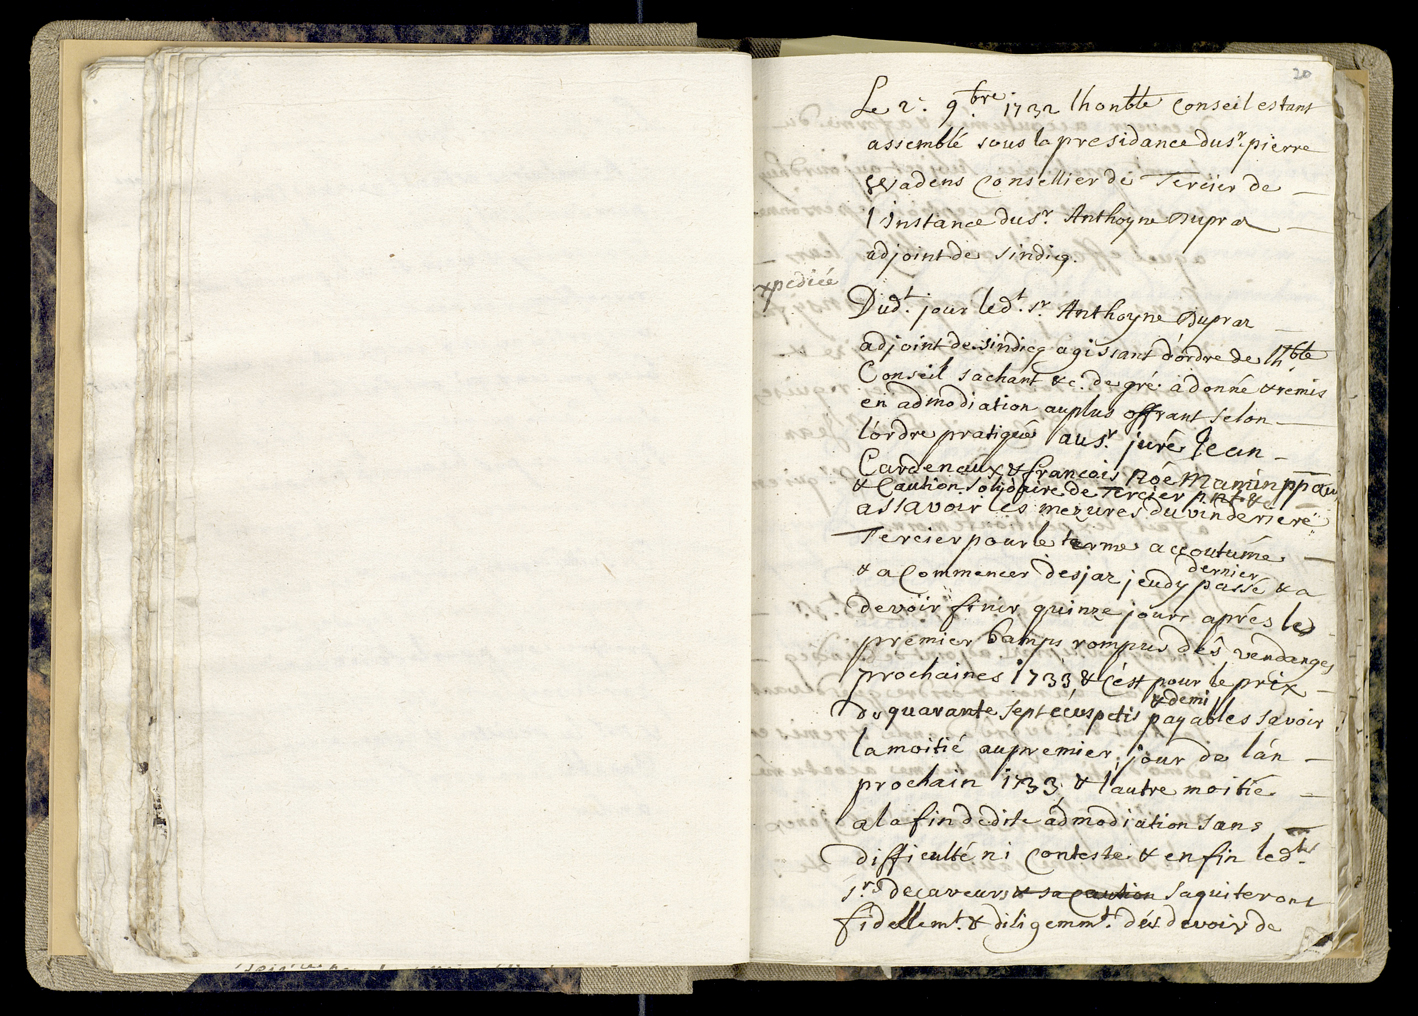 20
Le 2.e 9.bre 1732 lhonble Conseil estant
assemblé sous la presidance du sr. pierre
Wadens Consellier de Tercier de
l'instance du sr. Anthoyne Dupraz
adjoint de sindicq.
expediée
Dud.t jour led.t sr. Anthoyne Dupraz
adjoint de sindicq agissant d'ordre de lh.ble
Conseil sachant &c. de gré à donné & remis
en admodiation au plus offrant selon
l'ordre pratiqué au sr. juré Jean
Cardenaux & françois Noé Mamin
& Caution solidaire de Tercier pnt &c
assavoir les mezures du vin deriere
Tercier pour le terme accoutumé
& a Commencer desja jeudy passé & a
dernier
devoir finir quinze jours aprés les
premier bamps rompus dés vendanges
prochaines 1733 & c'est pour le prix
& demi
de quarante sept écus petis payables savoir
la moitié au premier jour de l'an
prochain 1733 & l'autre moitié
a la fin de dite admodiation sans
difficulté ni Conteste & enfin led.ts
srs decaveurs & sa Caution saquiteront
fidellem.t & diligemm.t dés devoir de